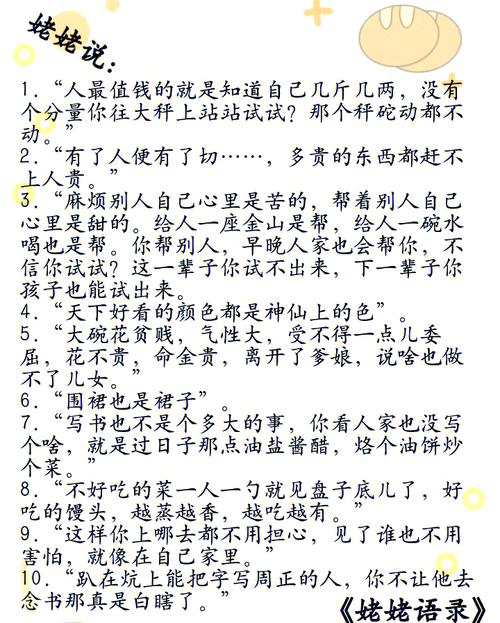 姥姥说：
1．“人最值钱的就是知道自己几斤几两，没有
个分量你往大秤上站站试试？那个秤砣动都不
动。”
2．“有了人便有了切……，多贵的东西都赶不
上人贵。”
3．“麻烦别人自己心里是苦的，帮着别人自己
心里是甜的。给人一座金山是帮，给人一碗水
喝也是帮。你帮别人，早晚人家也会帮你，不
信你试试？这一辈子你试不出来，下一辈子你
孩子也能试出来。
4．“天下好看的颜色都是神仙上的色”。
5．“大碗花贫贱，气性大，受不得一点儿委
屈，花不贵，命金贵，离开了爹娘，说啥也做
不了儿女。”
6．“围裙也是裙子”。
7．“写书也不是个多大的事，你看人家也没写
个啥，就是过日子那点油盐酱醋，烙个油饼炒
个菜。”
8．“不好吃的菜一人一勺就见盘子底儿了，好
吃的馒头，越蒸越香，越吃越有。”
9．“这样你上哪去都不用担心，见了谁也不用
害怕，就像在自己家里。”
10．“趴在炕上能把字写周正的人，你不让他去
念书那真是白瞎了。”
《姥姥语录》